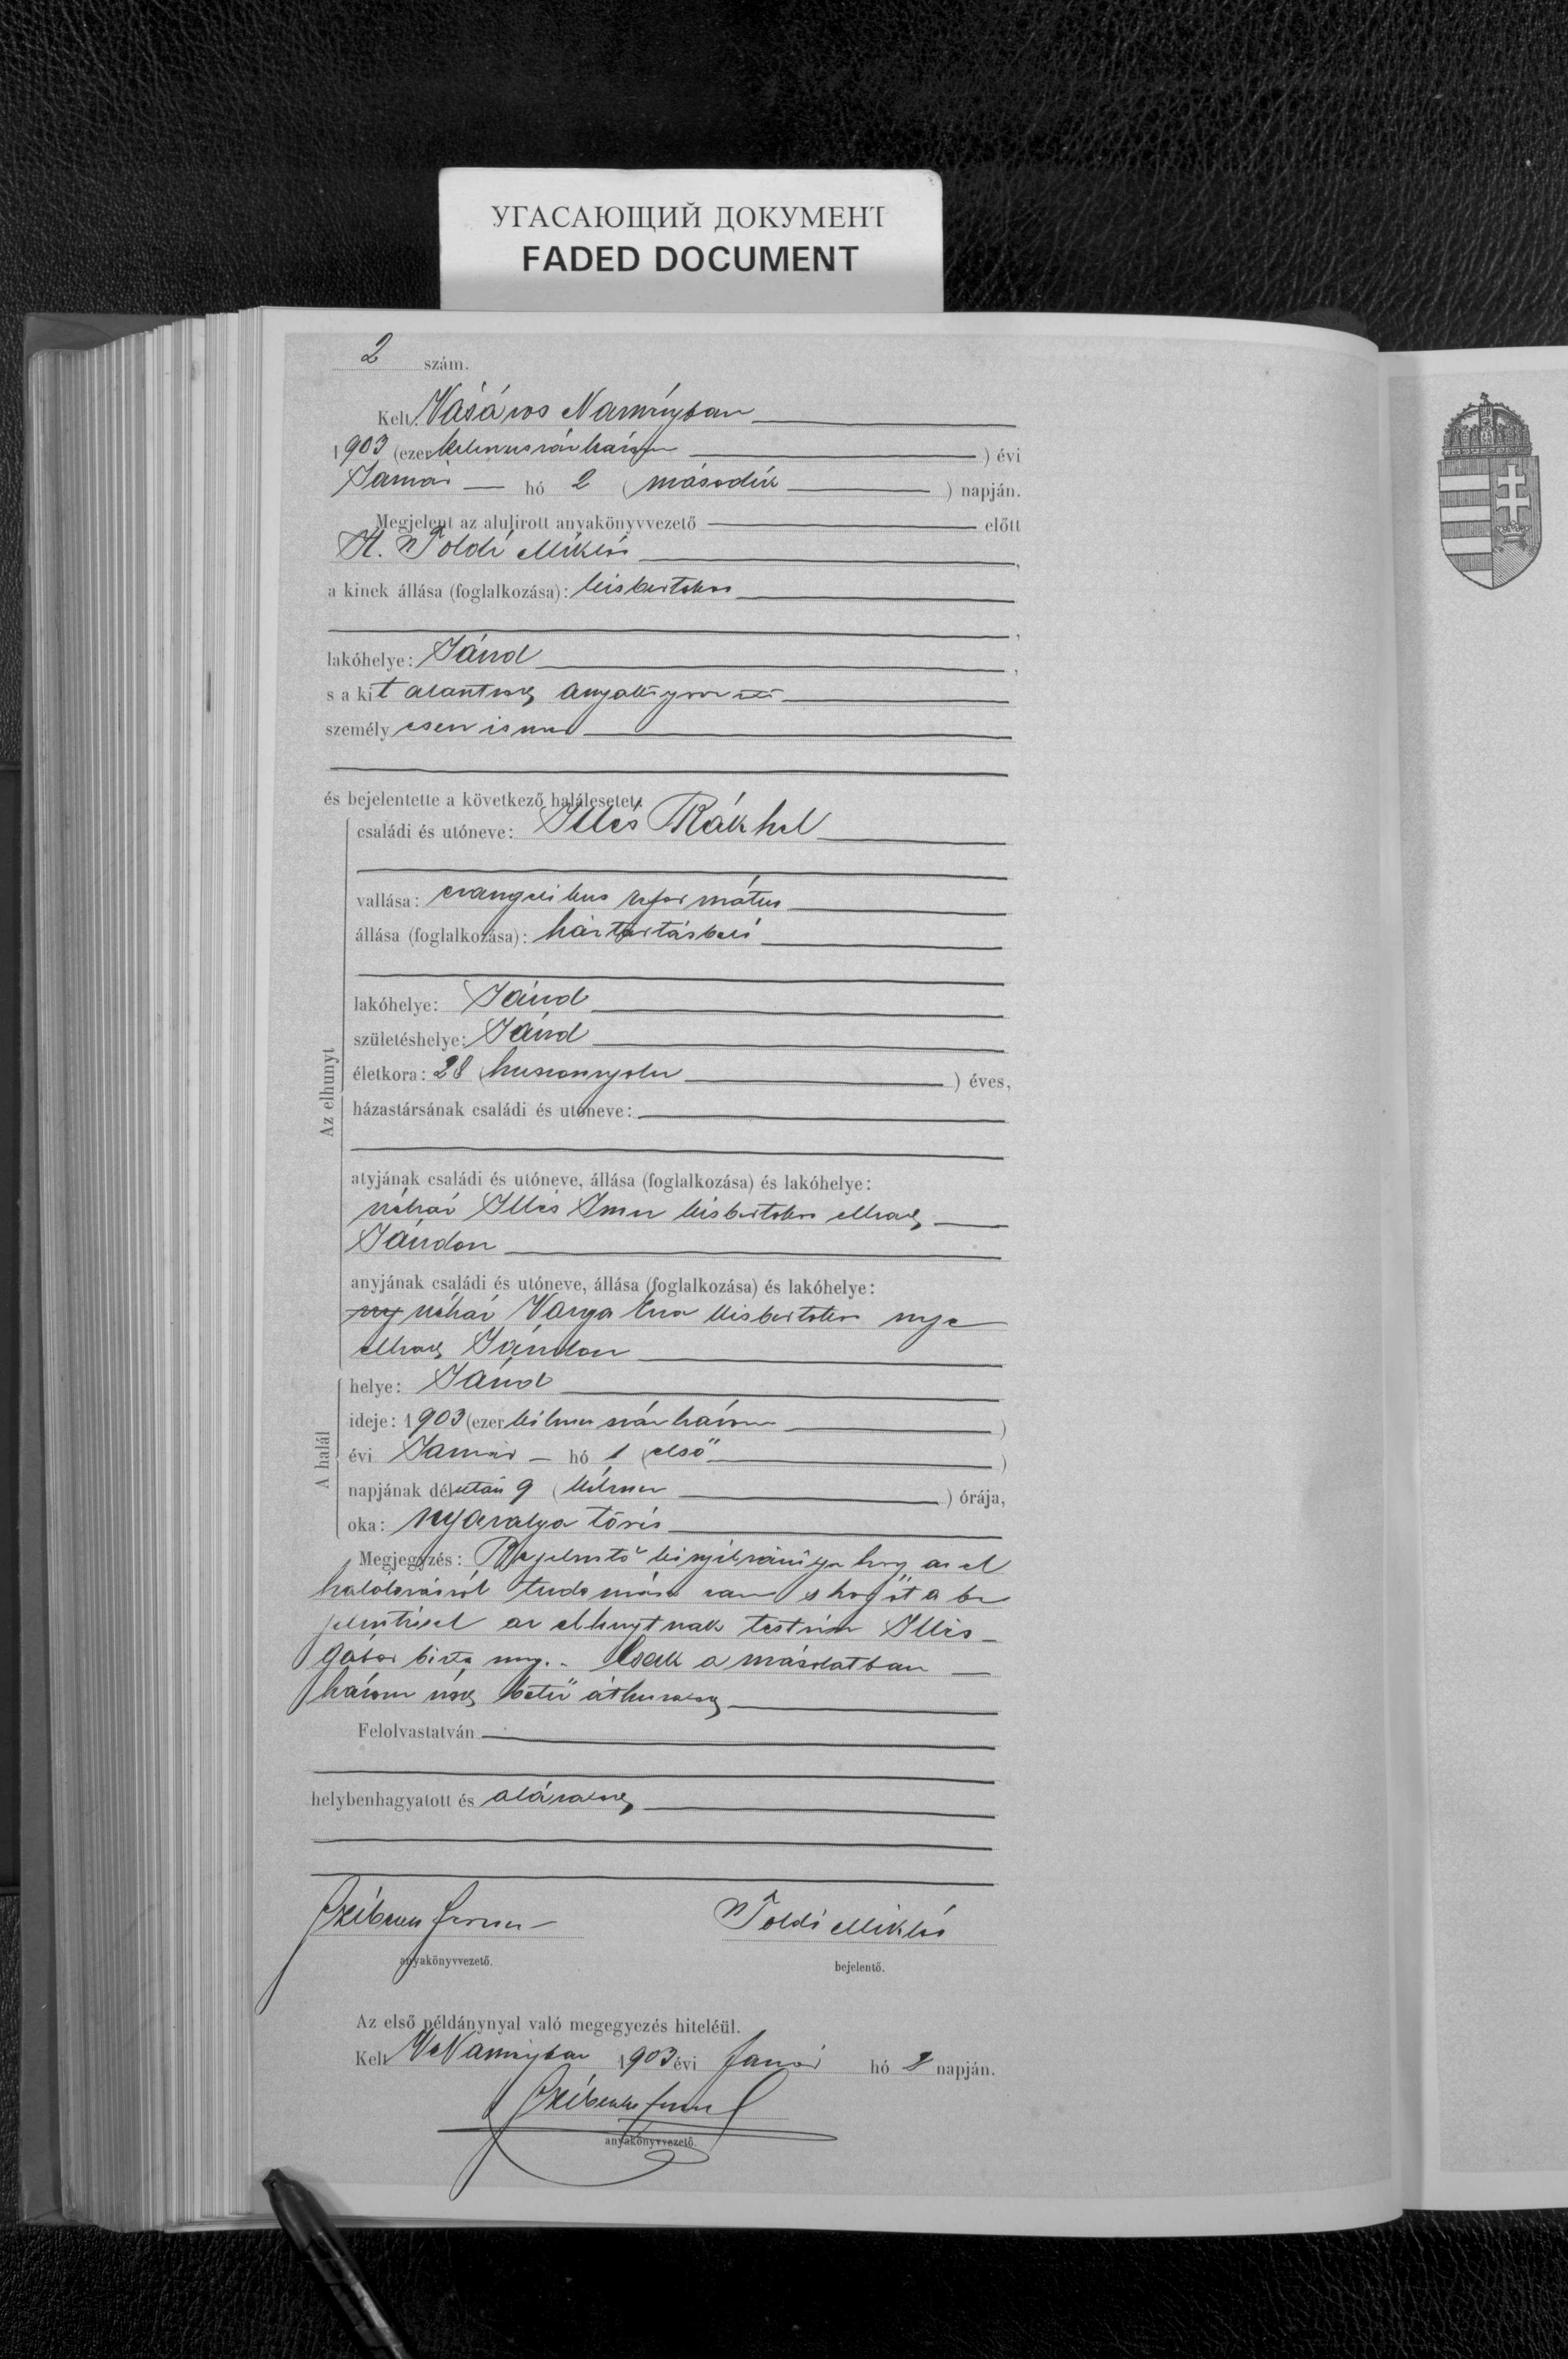 УГАСАЮЩИЙ ДОКУМЕНТ
FADED DOCUMENT
2 szám.
Kelt Vásáros Naményban
1903 (ezer kilenczszázhárom) évi
Január hó 2 (második) napján.
Megjelent az alulirott anyakönyvvezető előtt
H. Toldi Miklós,
a kinek állása (foglalkozása): kisbirtokos
,
lakóhelye: Jánd,
s a kit alantirott anyakönyvvezető
személyesen ismer
és bejelentette a következő halálesetet:
Az elhunyt
családi és utóneve: Illés Rákhel
vallása: evangelikus református
állása (foglalkozása): háztartásbeli
lakóhelye: Jánd
születéshelye: Jánd
életkora: 28 (huszonnyolcz) éves,
házastársának családi és utóneve:
atyjának családi és utóneve, állása (foglalkozása) és lakóhelye:
néhai Illés Imre kisbirtokos elhalt
Jándon
anyjának családi és utóneve, állása (foglalkozása) és lakóhelye:
néhai Varga kisbirtokos neje
elhalt Jándon
A halál
helye: Jánd
ideje: 1903 (ezer kilencz száz három)
évi Január hó 1 (első)
napjának délután 9 (kilencz) órája,
oka:
Megjegyzés: Bejelentő kinyilvánítja hogy az el
halálozásról tudomása van s hogy őt a be
jelentéssel az elhunytnak testvére Illés
Gábor bizta meg. Csak a másolatban
három betű áthuzatott
Felolvastatván
helybenhagyatott és aláiratott
Toldi Miklós
anyakönyvvezető.
bejelentő.
Az első példánynyal való megegyezés hiteléül.
Kelt V Naményban 1903 évi Január hó 2 napján.
anyakönyvvezető.